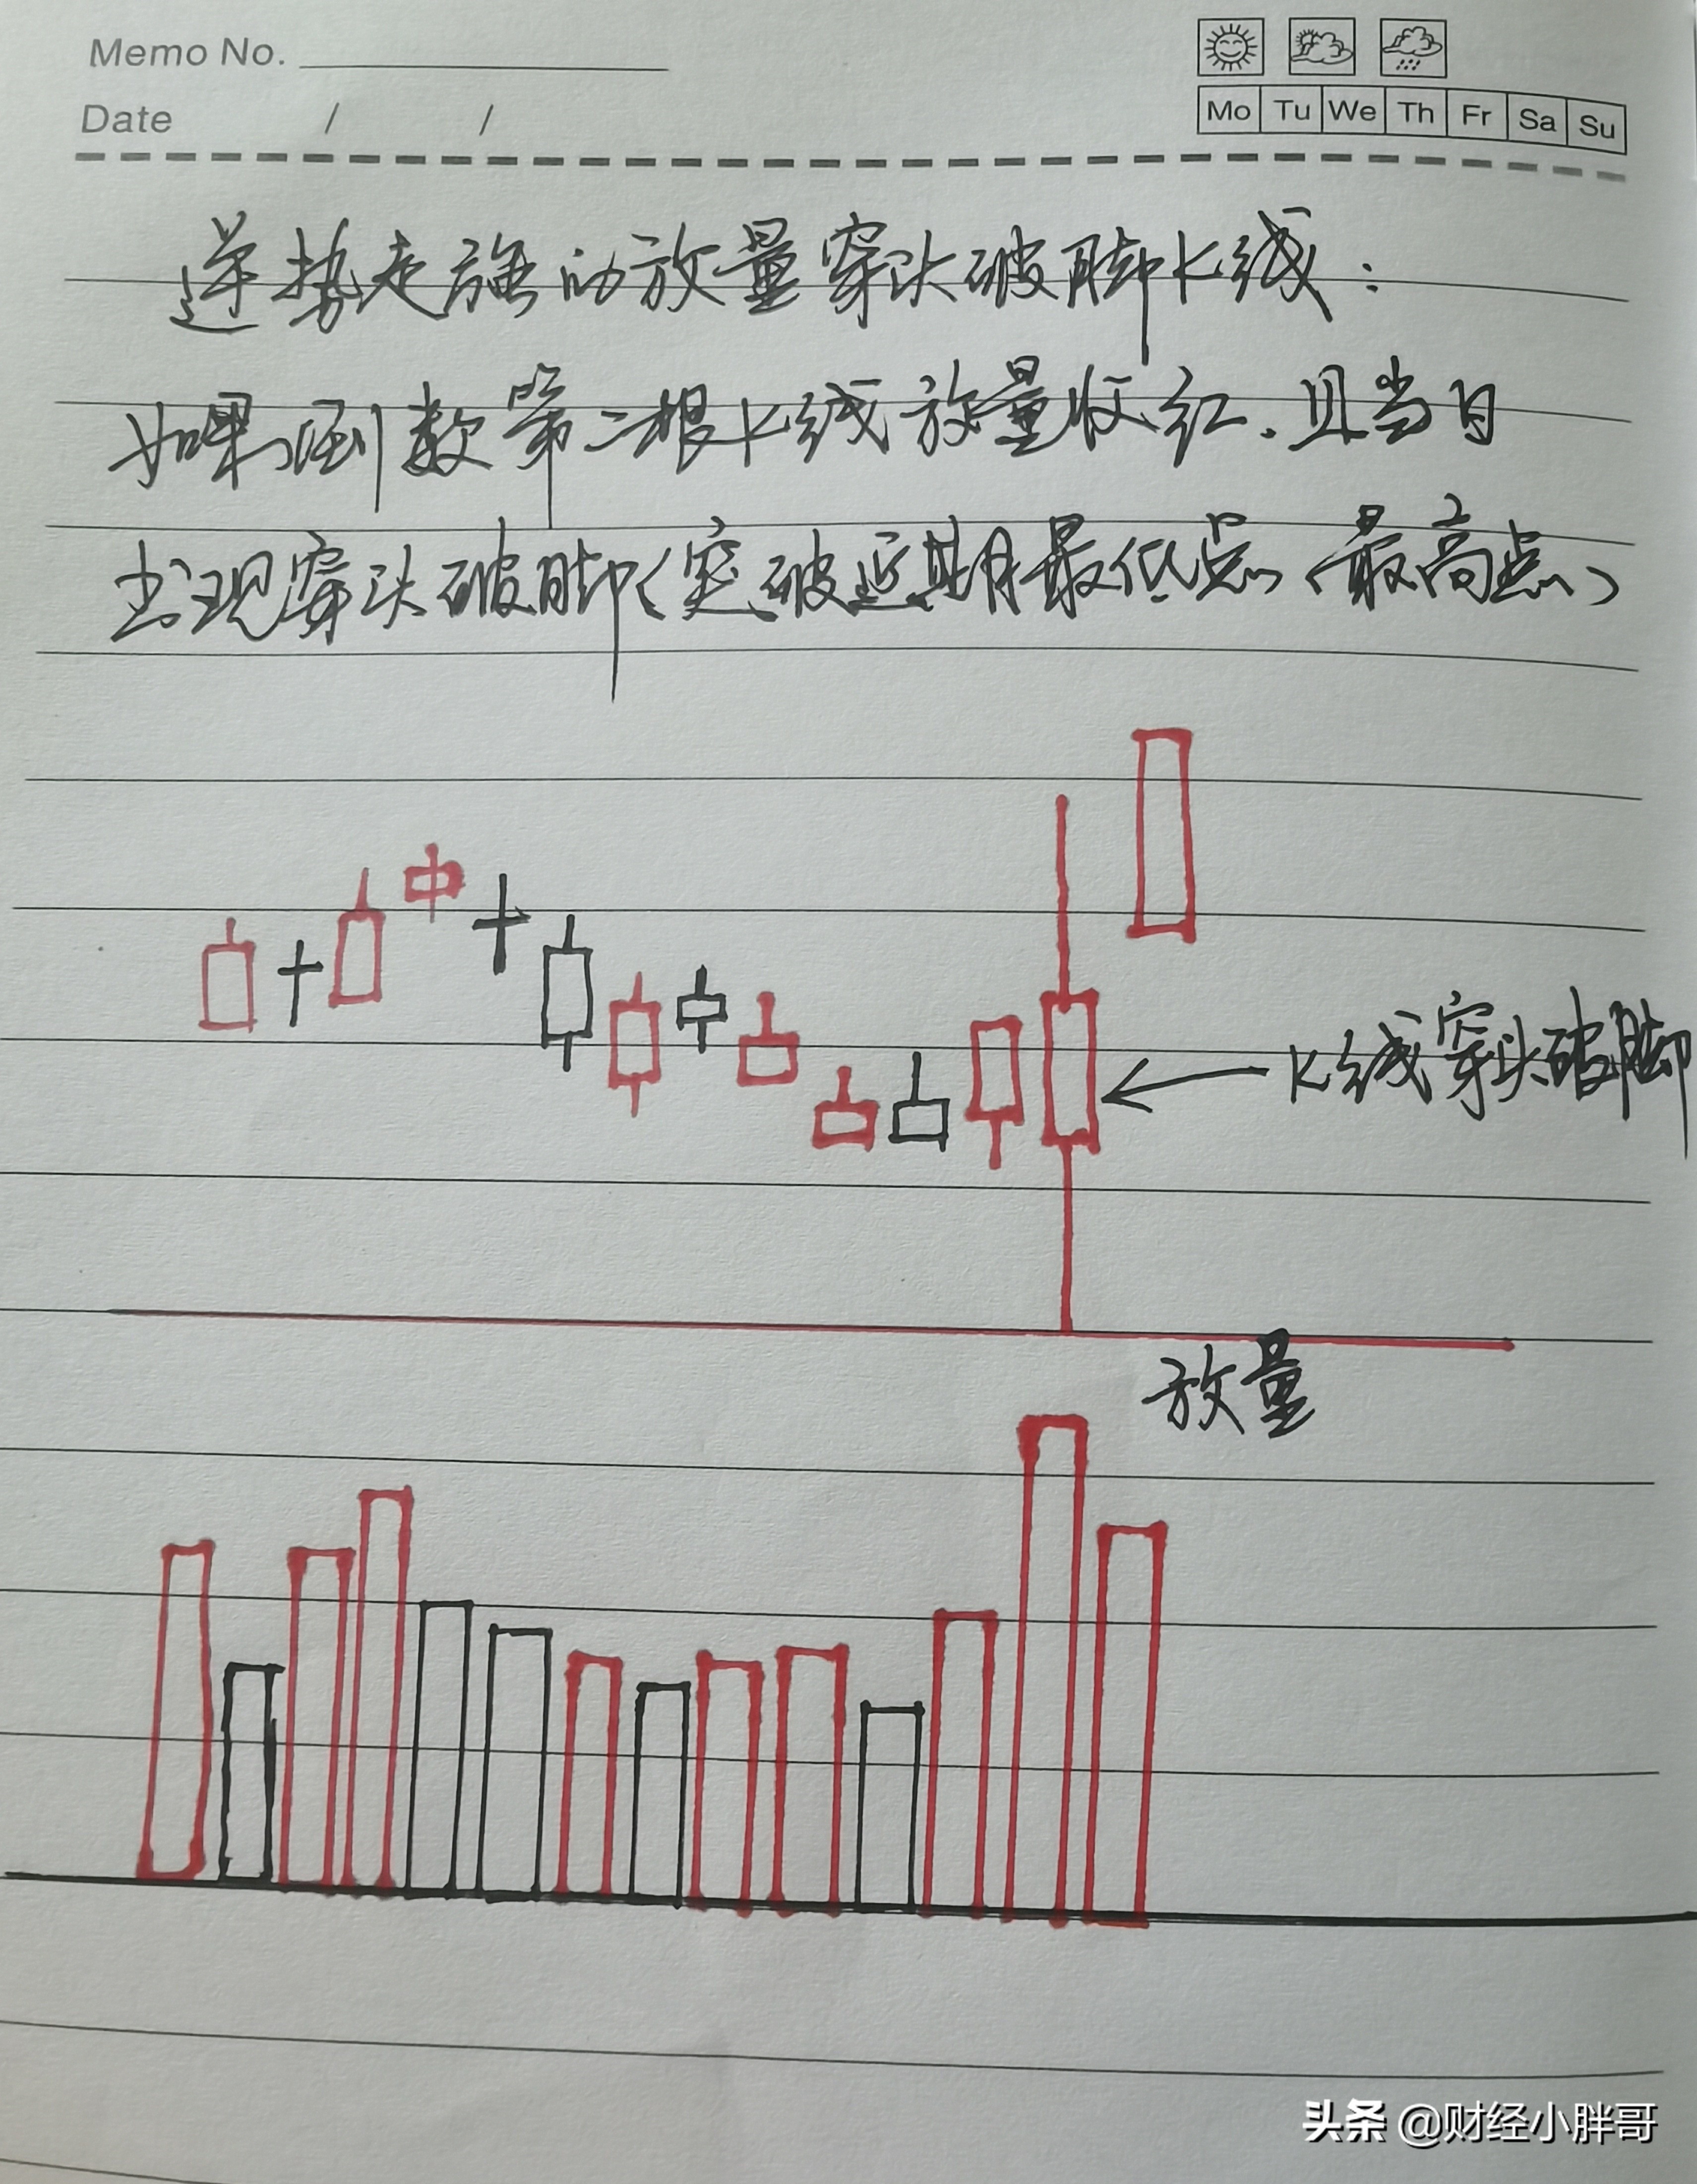 Memo No.
Date / /
Mo Tu We Th Fr Sa Su
逆势走强的放量穿头破脚K线：
如果倒数第二根K线放量收红.且当日
出现穿头破脚(突破近期最低点、最高点)
K线穿头破脚
放量
头条 @财经小胖哥